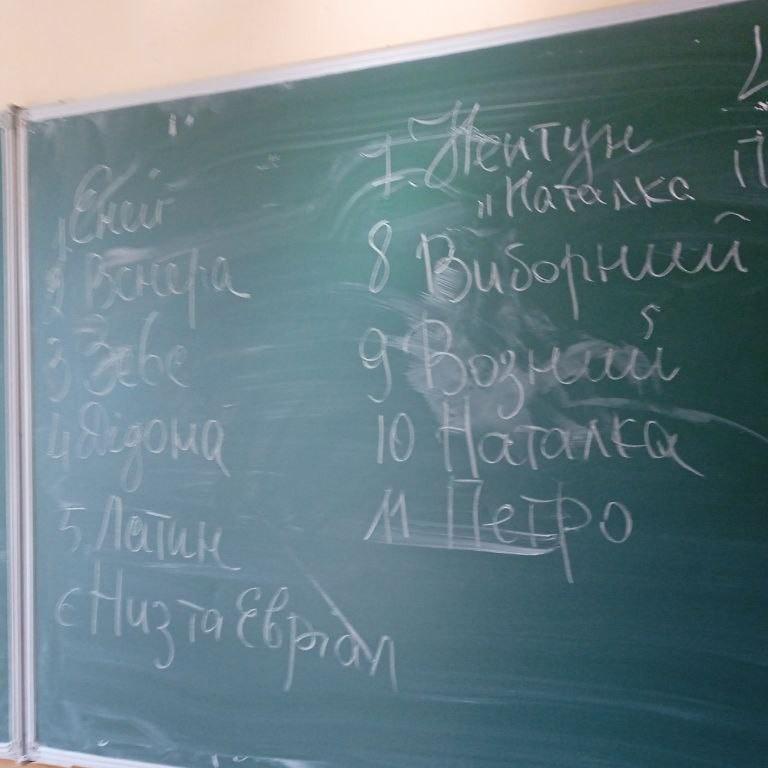 1 Еней
2 Венера
3 Зевс
4 Дідона
5. Латин
6 Низ та Евріал
7. Нептун
"Наталка
8 Виборний
9 Возний
10 Наталка
11 Петро